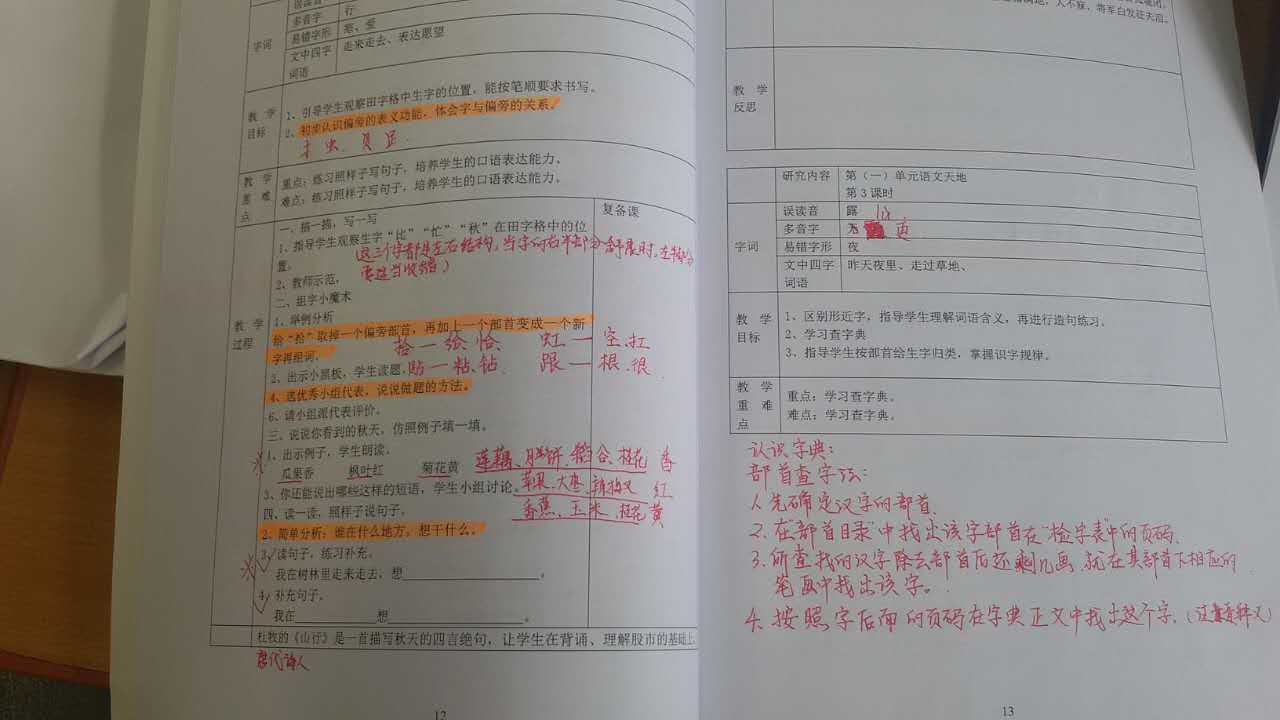 误读音
多音字 行
字词
易错字形 惩、爱
文中四字词语 走来走去、表达愿望
教学目标
1、引导学生观察田字格中生字的位置，能按笔顺要求书写。
2、初步认识偏旁的表义功能，体会字与偏旁的关系。
扌 虫 贝 足
教学重难点
重点：练习照样子写句子，培养学生的口语表达能力。
难点：练习照样子写句子，培养学生的口语表达能力。
教学过程
复备课
一、描一描，写一写
1、指导学生观察生字“比”“忙”“秋”在田字格中的位
置。
这三个字都是左右结构，当字的右半部分舒展时，左半部分
要适当收缩）
2、教师示范。
二、组字小魔术
1、举例分析
给“拾”取掉一个偏旁部首，再加上一个部首变成一个新
字再组词。
拾—给、恰、 虹—空、扛
3、出示小黑板，学生读题。
贴—粘、钻、 跟—根、很
4、选优秀小组代表，说说做题的方法。
6、请小组派代表评价。
三、说说你看到的秋天，仿照例子填一填。
1、出示例子，学生朗读。
瓜果香 枫叶红 菊花黄
莲藕、月饼、 桂花 香
3、你还能说出哪些这样的短语，学生小组讨论。
苹果、大枣、辣椒 红
四、读一读，照样子说句子。
香蕉、玉米、桂花 黄
2、简单分析：谁在什么地方，想干什么。
3、读句子，练习补充。
我在树林里走来走去，想＿＿＿＿＿＿。
4、补充句子。
我在＿＿＿＿想＿＿＿＿＿＿。
杜牧的《山行》是一首描写秋天的四言绝句，让学生在背诵、理解股市的基础上
唐代诗人
12
人不寐，将军白发征夫泪。
教学反思
研究内容 第（一）单元语文天地
第3课时
字词
误读音 露 lù
多音字 更
易错字形 夜
文中四字词语 昨天夜里、走过草地、
教学目标
1、区别形近字，指导学生理解词语含义，再进行造句练习。
2、学习查字典
3、指导学生按部首给生字归类，掌握识字规律。
教学重难点
重点：学习查字典。
难点：学习查字典。
认识字典：
部首查字法：
1、先确定汉字的部首
2、在“部首目录”中找出该字部首在“检字表”中的页码.
3、所查找的汉字除去部首后还剩几画 就在其部首下相应的
笔画中找出该字。
4、按照字后面的页码在字典正文中找出这个字.
13